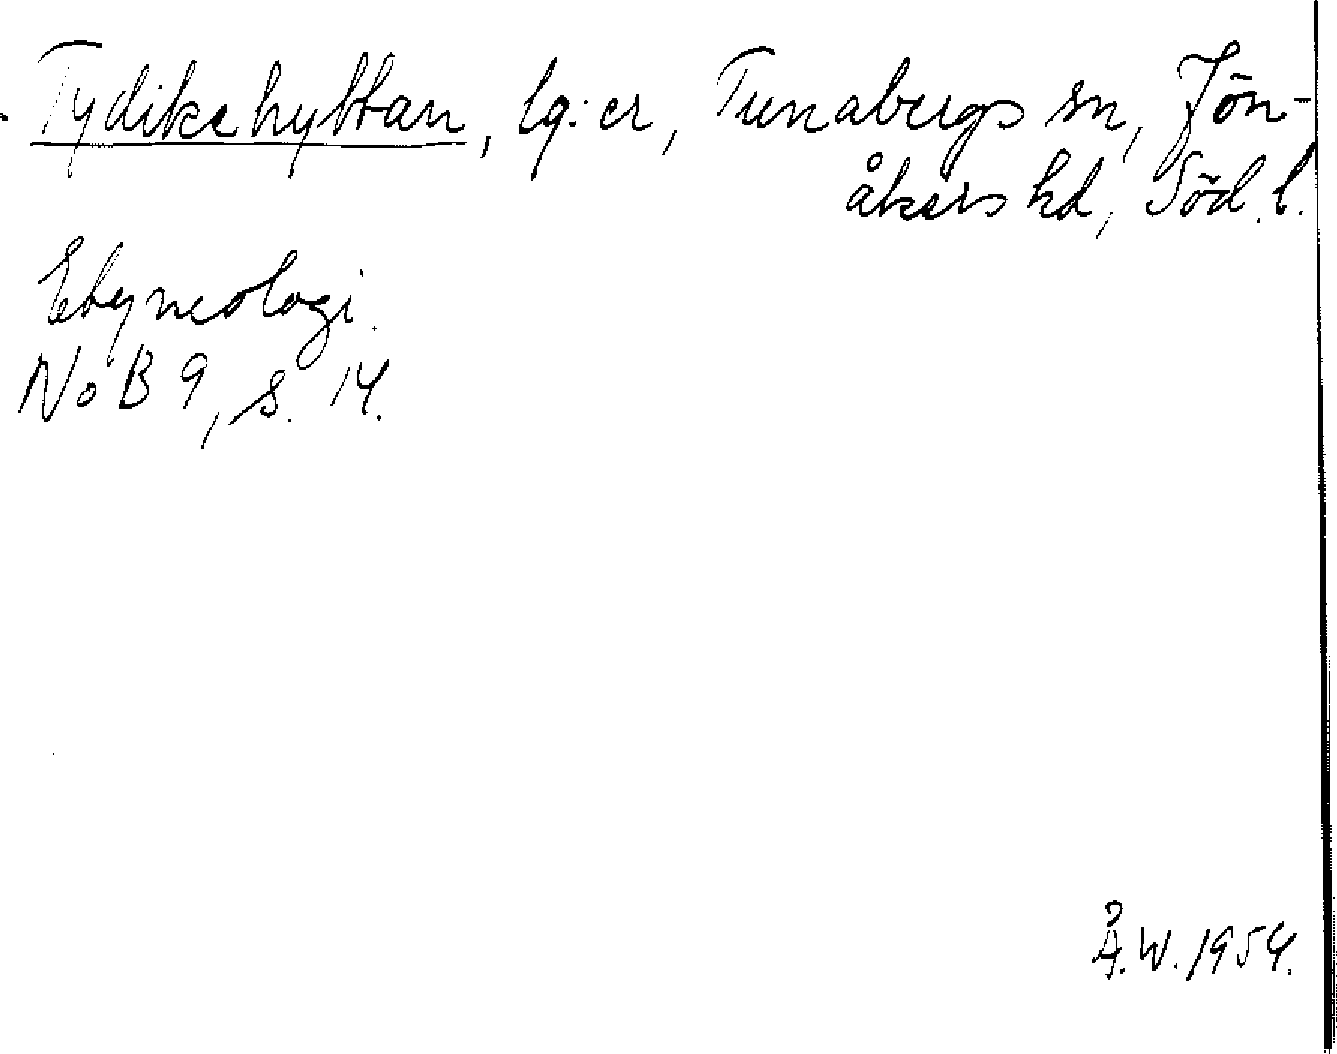 Tydikshyttan, lg:er, Tunabergs sn, Jön-
åkers hd, Söd.l.
Etymologi.
NoB 9, s. 14.
Å.W. 1954.